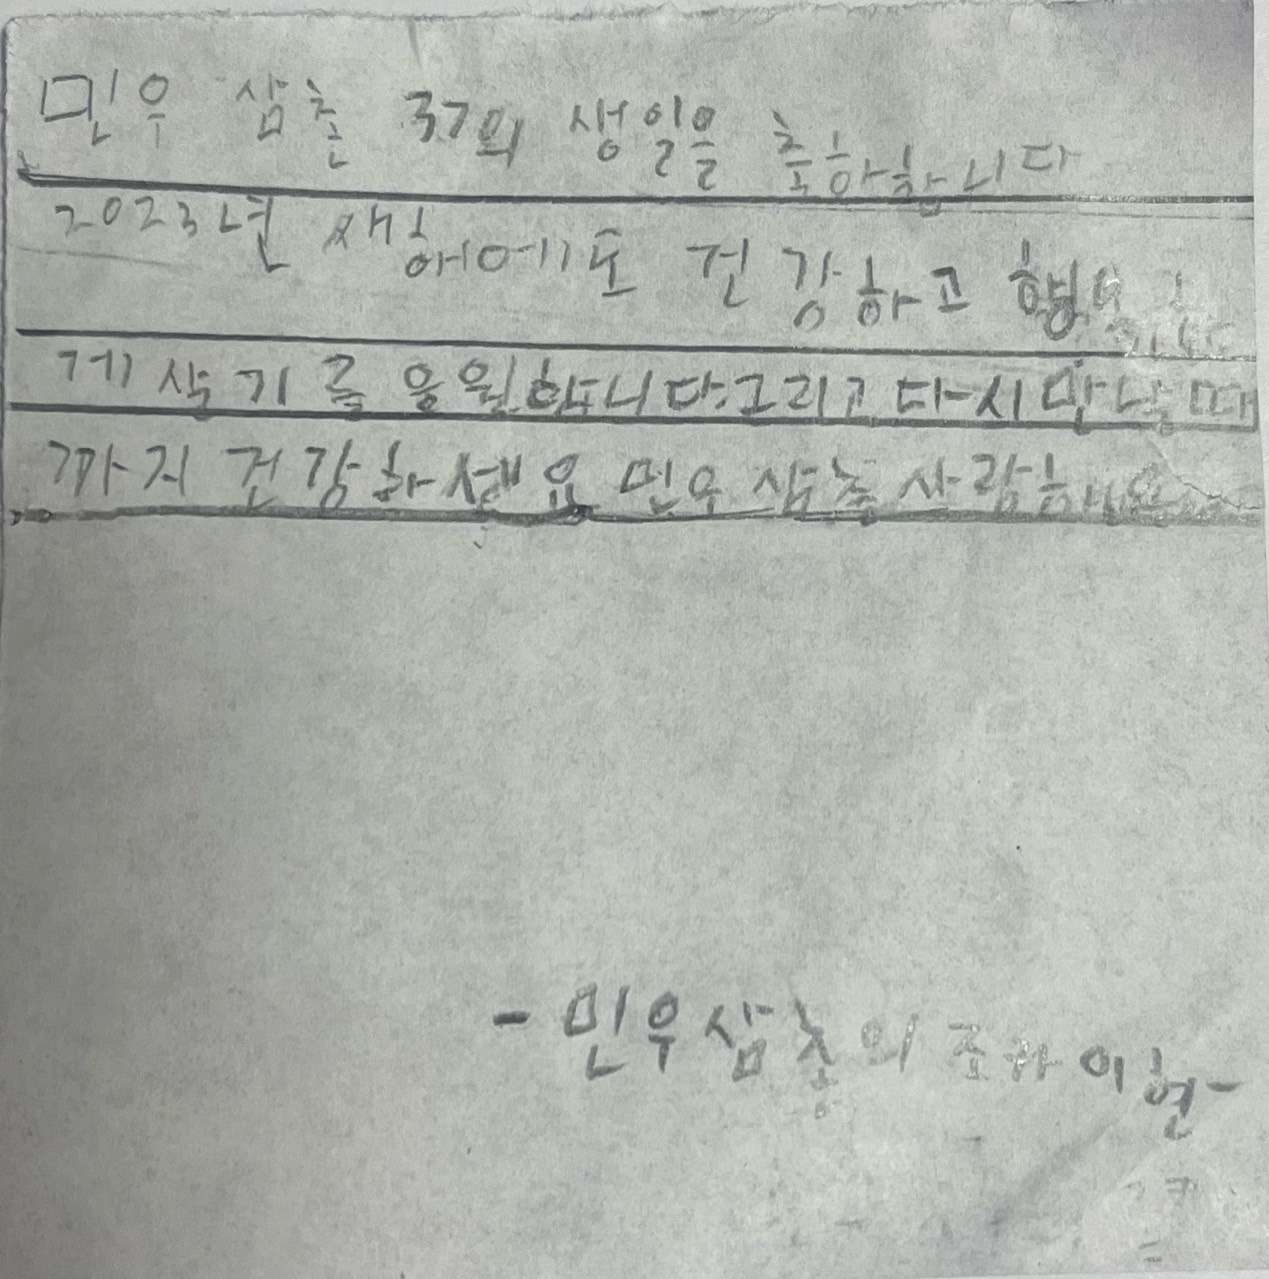 민우 삼촌 37의 생일을 축하합니다
2023년 새해에도 건강하고
게 살기를 응원합니다.그리고 다시 만날 때
까지 건강하세요 민우 삼촌 사랑해요
- 민우삼촌의 조카 이현-